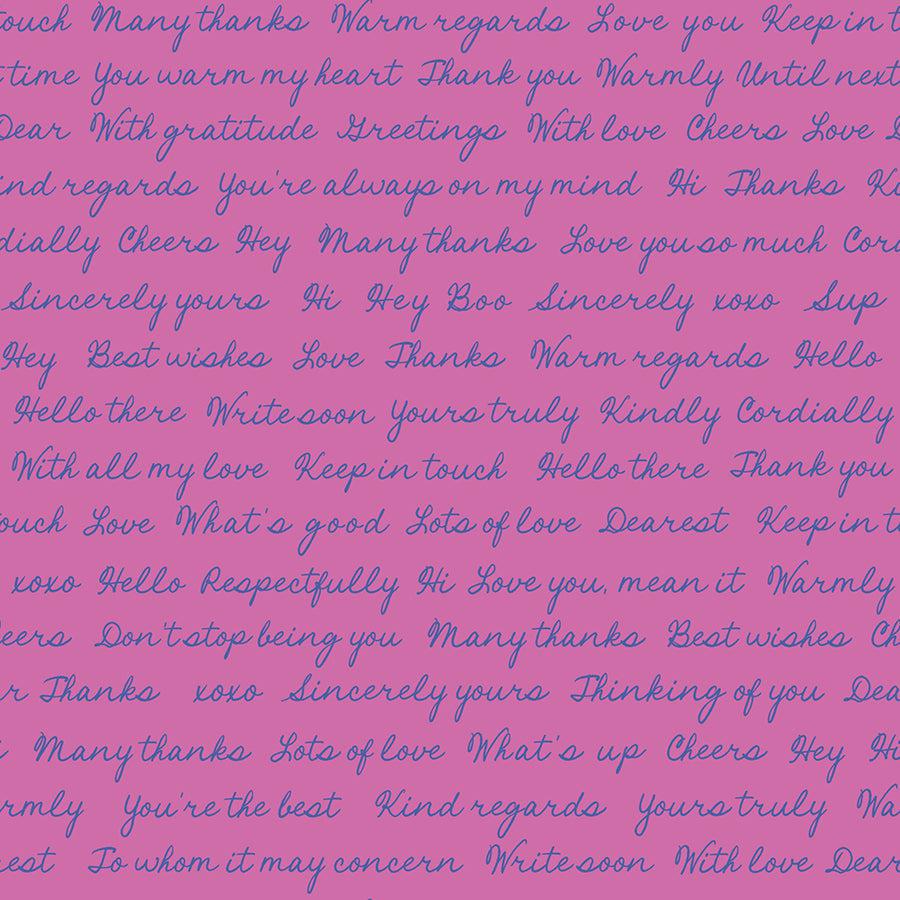 touch Many thanks Warm regards Love you Keep in t
time You warm my heart Thank you Warmly Until next
Dear With gratitude Greetings With love Cheers Love D
ind regards You're always on my mind Hi Thanks Ki
dially Cheers Hey Many thanks Love you so much Cord
Sincerely yours Hi Hey Boo Sincerely xoxo Sup
Hey Best wishes Love Thanks Warm regards Hello
Hello there Write soon Yours truly Kindly Cordially
With all my love Keep in touch Hello there Thank you
ouch Love What's good Lots of love Dearest Keep in to
xoxo Hello Respectfully Hi Love you, mean it Warmly
eers Don't stop being you Many thanks Best wishes Ch
r Thanks xoxo Sincerely yours Thinking of you Dea
i Many thanks Lots of love What's up Cheers Hey Hi
rmly You're the best Kind regards Yours truly Wa
rest To whom it may concern Write soon With love Dear